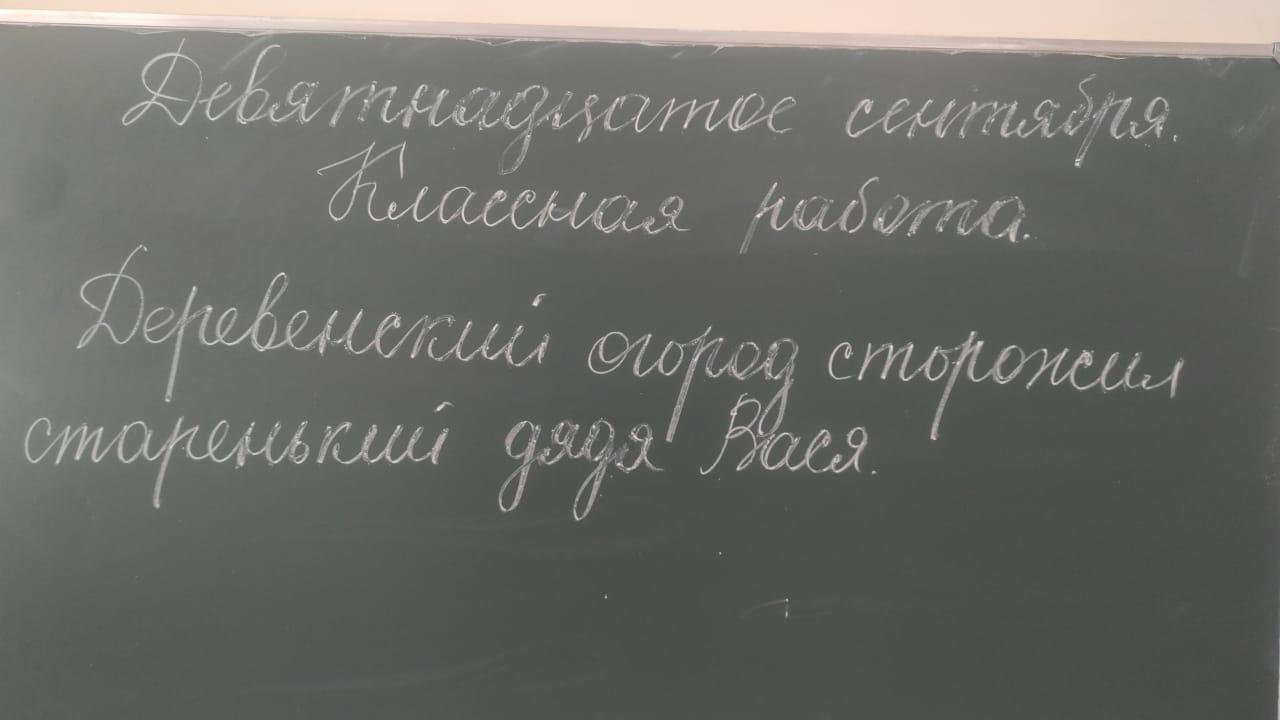 Девятнадцатое сентября.
Классная работа.
Деревенский огород сторожил
старенький дядя Вася.